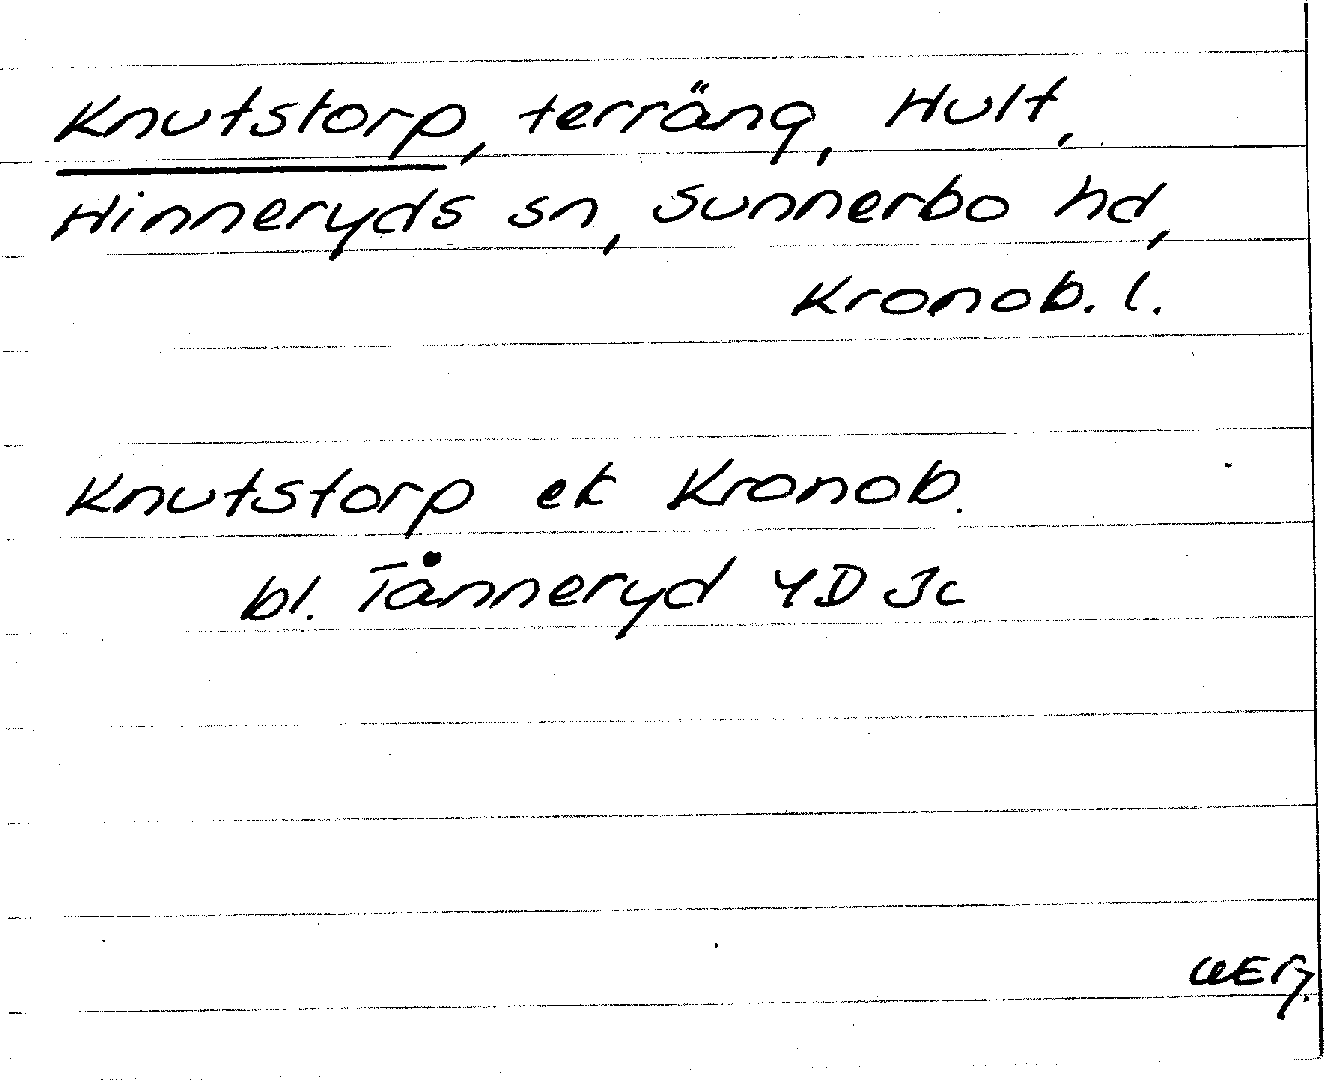 Knutstorp, terräng, Hult,
Hinneryds sn, Sunnerbo hd,
Kronob. l.
Knutstorp ek Kronob.
bl. Tånneryd 4D 3c